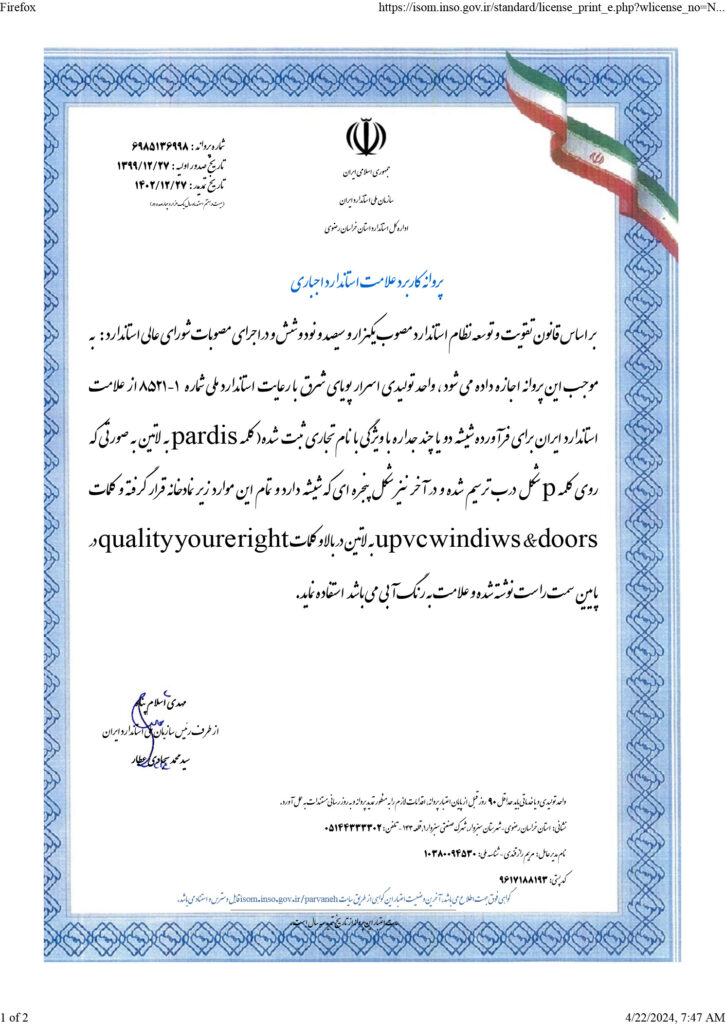 Firefox
https://isom.inso.gov.ir/standard/license_print_e.php?wlicense_no=N...
شماره پروانه : ۶۹۸۵۱۳۶۹۹۸
تاریخ صدور اولیه : ۱۳۹۹/۱۲/۲۷
تاریخ تمدید : ۱۴۰۲/۱۲/۲۷
جمهوری اسلامی ایران
سازمان ملی استاندارد ایران
اداره کل استاندارد استان خراسان رضوی
پروانه کاربرد علامت استاندارد اجباری
بر اساس قانون تقویت و توسعه نظام استاندارد مصوب یکهزار و سیصد و نود و شش و در اجرای مصوبات شورای عالی استاندارد : به
موجب این پروانه اجازه داده می شود ، واحد تولیدی اسرار پویای شرق با رعایت استاندارد ملی شماره ۱-۸۵۲۱ از علامت
استاندارد ایران برای فرآورده شیشه دو یا چند جداره با ویژگی با نام تجاری ثبت شده( کلمه pardis به لاتین به صورتی که
روی کلمه p شکل درب ترسیم شده و در آخر نیز شکل پنجره ای که شیشه دارد و تمام این موارد زیر نماد خانه قرار گرفته و کلمات
upvcwindiws&doors به لاتین در بالا و کلمات qualityyoureright در
پایین سمت راست نوشته شده و علامت به رنگ آبی می باشد استفاده نماید.
مهدی اسلام پناه
از طرف رئیس سازمان ملی استاندارد ایران
سید محمد سجادی عطار
واحد تولیدی و یا خدماتی باید حداقل ۹۰ روز قبل از پایان اعتبار پروانه، اقدامات لازم را به منظور تمدید پروانه و به روز رسانی مستندات به عمل آورد.
نشانی: استان خراسان رضوی - شهرستان سبزوار، شهرک صنعتی سبزوار۱، قطعه ۱۳۳ - تلفن: ۰۵۱۴۴۳۳۳۳۰۲
نام مدیر عامل: مریم رازقندی - شناسه ملی: ۱۰۳۸۰۰۹۴۵۳۰
کد پستی: ۹۶۱۷۱۸۸۱۹۳
گواهی فوق جهت اطلاع می باشد، آخرین وضعیت اعتبار این گواهی از طریق سایت isom.inso.gov.ir/parvaneh قابل دسترس و استنادی می باشد.
مدت اعتبار این پروانه از تاریخ تمدید سه سال است.
1 of 2
4/22/2024, 7:47 AM